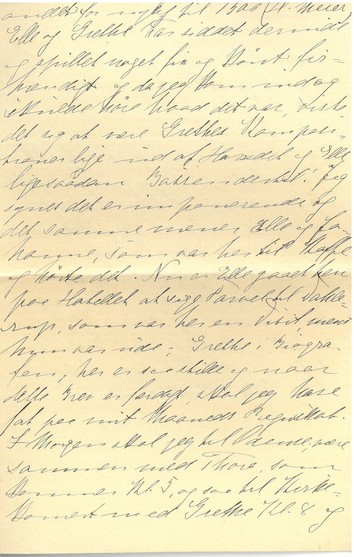 andet
Elle og Grethe har siddet derinde
og spillet noget fin og skønt fir-
hændigt og da jeg kom ind og
skulde høre hvad det var, viste
det sig at være Grethes Komposi-
tioner lige ud af Hovedet og Elle
ligesaadan Jeg
synes det er imponerende og
det samme mener Elle og
som var her til Kaffe
og hørte det. Nu er Elle gaaet hen
paa Hotellet at sige Farvel til
som var her en Visit, mens
hun var ude; Grethe i Biogra-
fen, her er saa stille og naar
dette Brev er færdigt, skal jeg tage
fat paa mit Maaneds Regnskab.
I Morgen skal jeg til være
sammen med Thora, som
kommer Kl. 5, og saa til Kirke-
koncert med Grethe Kl. 8 og